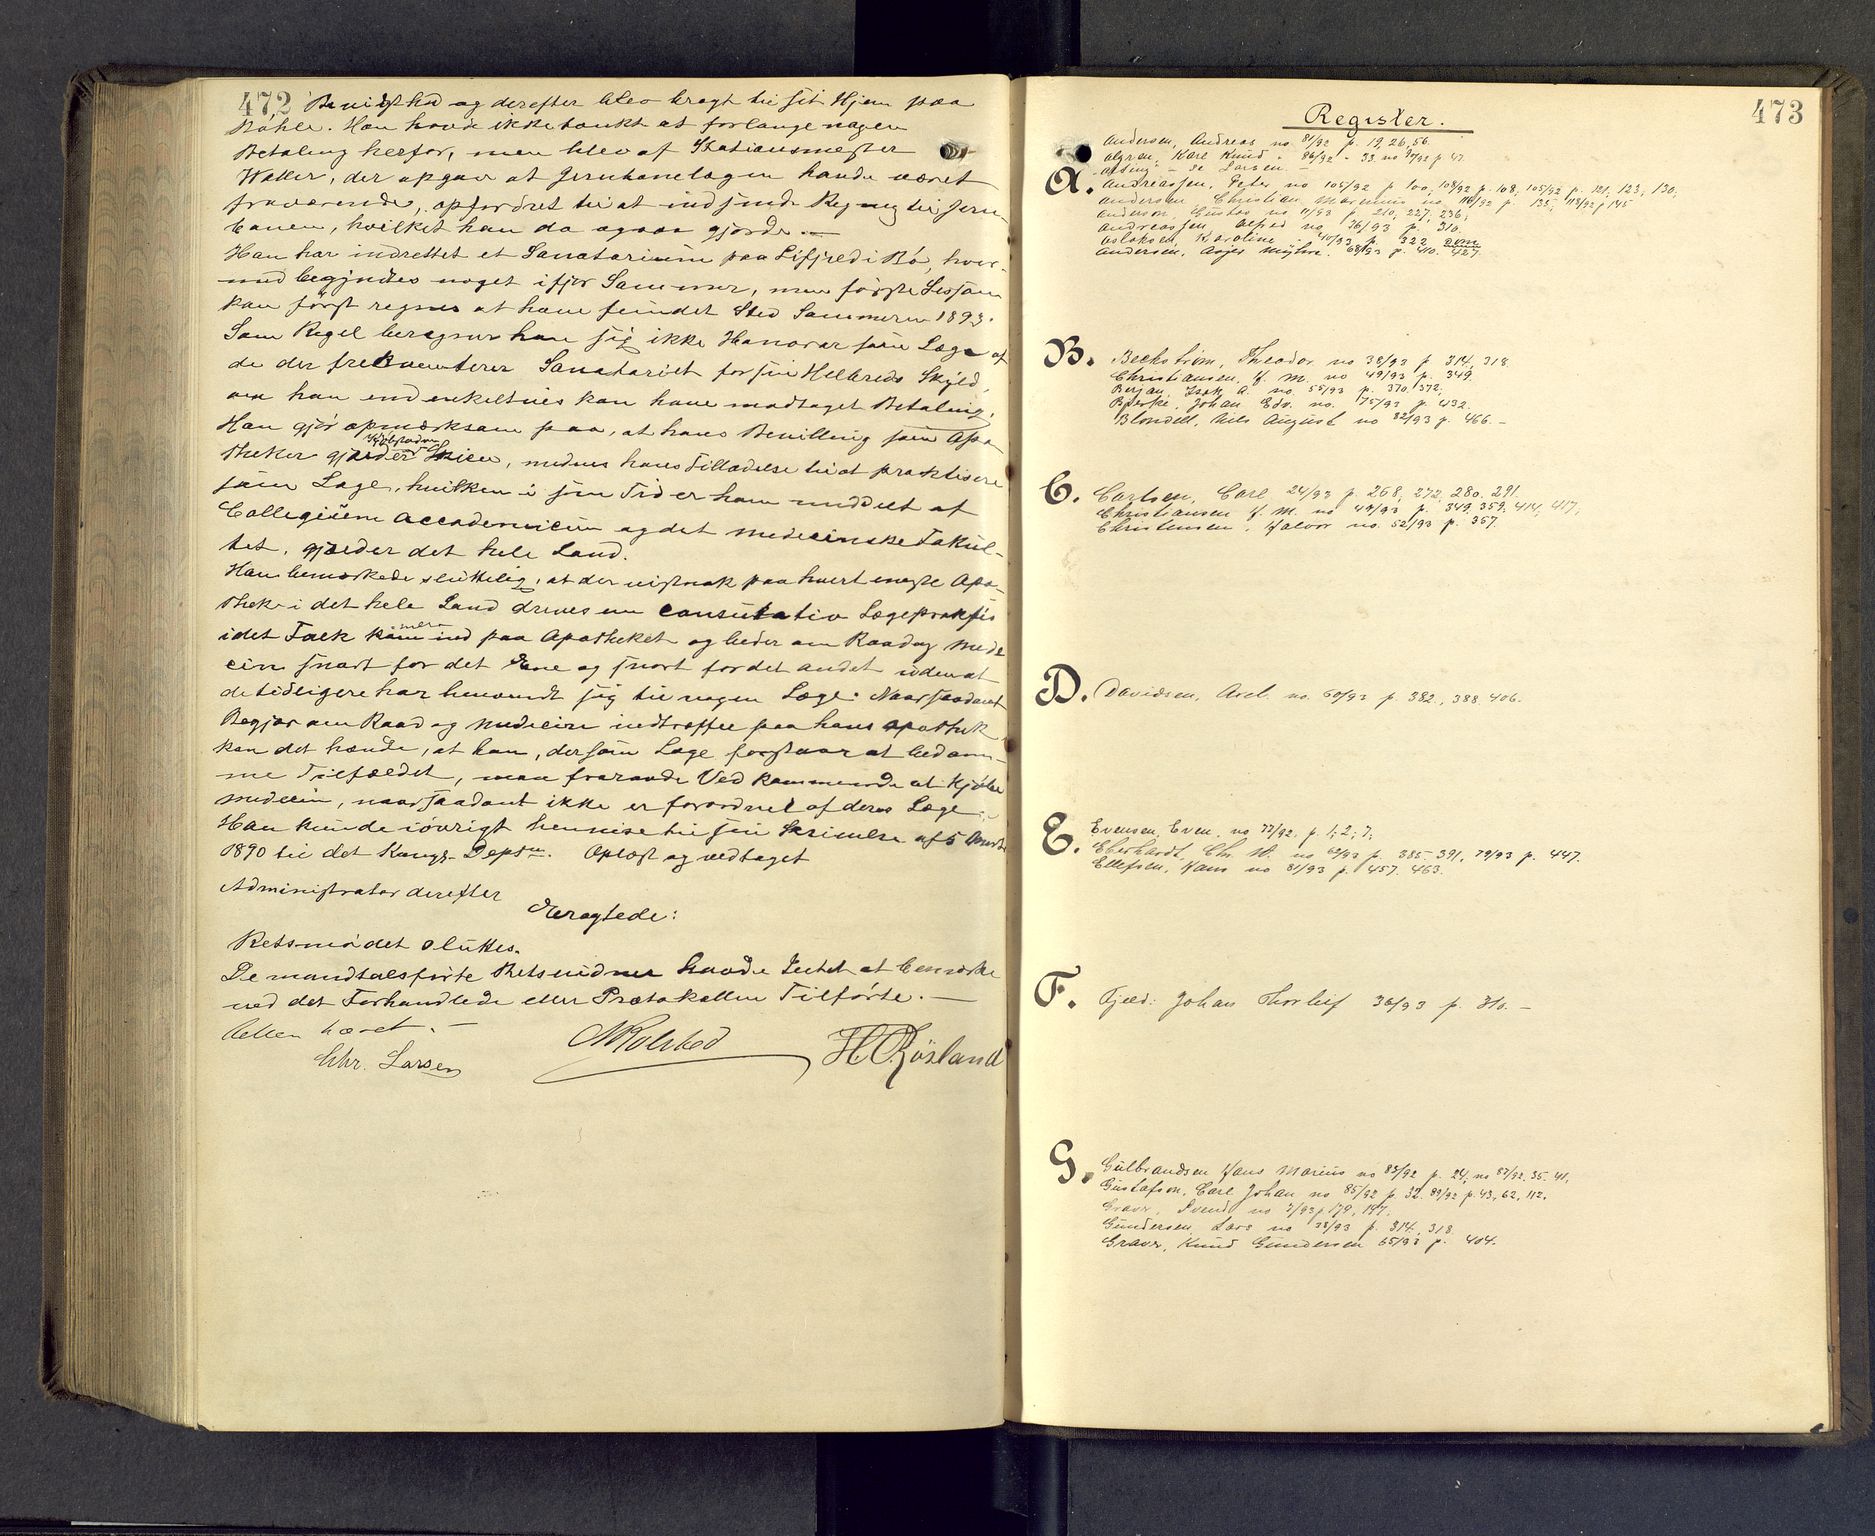 472 Bevidsthed og derefter blev bragt til sit Hjem paa
Bøhle. Han havde ikke tænkt at forlange nogen
Betaling herfor, men blev af Stationsmester
Waller, der opgav at Jernbanelægen havde været
fraværende, opfordret til at indsende Regning til Jern
banen, hvilket han da ogsaa gjorde. —
Han har indrettet et Sanatorium paa Lifjeld i Bø, hvor-
med begyndtes noget ifjor Sommer, men første Sesson
kan først regnes at have fundet Sted Sommeren 1893.
Som Regel beregner han sig ikke Honorar som Læge af
de der frekventerer Sanatoriet for sin Helbreds Skyld,
om han end enkeltvis kan have modtaget Betaling.
Han gjør opmærksom paa, at hans Bevilling som Apo
theker gjælder Kjøbstaden Skien, medens hans Tilladelse til at praktisere
som Læge, hvilken i sin Tid er ham meddelt af
Collegium accademicum og det medicinske Fakul-
tet, gjælder det hele Land.
Han bemærkede sluttelig, at der vistnok paa hvert eneste Apo-
thek i det hele Land drives en consultativ Lægepraksis
idet Folk kommer ind paa Apotheket og beder om Raad og Medi
cin snart for det Ene og snart for det andet uden at
de tidligere har henvendt sig til nogen Læge. Naar saadant
Begjær om Raad og Medicin indtræffer paa hans apothek
kan det hænde, at han, der som Læge forstaar at bedøm-
me Tilfældet, maa fraraade Vedkommende at kjøbe
medicin, naar saadant ikke er forordnet af deres Læge. -
Han kunde iøvrigt henvise til sin Skrivelse af 5 Marts
1890 til det Kongl. Deptn. Oplæst og vedtaget
Administrator derefter
Eragtede:
Retsmødet sluttes.
De mandtalsførte Retsvidner havde Intet at bemærke
ved det Forhandlede eller Protokollen Tilførte. —
Retten hævet. —
Chr. Larsen
NRolsted
H C Røsland
473
Register.
A.
Andersen, Andreas no 81/92 p. 19, 26, 56.
Algren, Karl Knud " 86/92 - 33 no 91/92 p 47.
Andreassen, Peter no 105/92 p 100, 108/92 p. 108, 105/92 p. 121, 123, 130,
Andersen, Christian Marenius no 116/92 p. 135, 118/92 p 145
Anderson, Gustav no 11/93 p. 210, 227. 236,
Andreassen Alfred no 36/93 p. 310.
Aslaksen, Karoline " 40/93 p. 322
Andersen, Asjer Myhre. 68/93 p. 410. 427.
B.
Beckstrøm, Theodor no 38/93 p. 314, 318.
Christiansen. H. M. no 49/93 p. 349.
Berjan, Isak A. no. 55/93 p. 370. 372.
Bjerke, Johan Edv. no. 75/93 p. 432.
Blondell, Nils August no 82/93 p. 466. -
C.
Carlsen, Carl 24/93 p. 268, 272, 280. 291.
Christiansen H. M. no 49/93 p. 349, 359. 414, 417,
Christensen, Halvor no. 52/93 p. 357.
D.
Davidsen, Axel. no. 60/93 p. 382., 388. 406.
E.
Evensen, Even, no 77/92. p. 1; 2; 7;
Eberhardt, Chr. W. no 62/93 p. 385. 391, 79/93 p. 447.
Ellefsen, Hans no 81/93 p. 457. 463.
F.
Fjeld: Johan Thorleif 36/93 p. 310. —
G.
Gulbrandsen Hans Marius no 83/92 p. 24, no 87/92. 35. 41.
Gustafson, Carl Johan no 85/92 p. 32. 89/92 p. 43, 62, 112.
Graver, Svend no 3/93 p 179, 197.
Gundersen, Lars no 38/93 p. 314, 318
Graver, Knud Gundersen 65/93 p. 404.